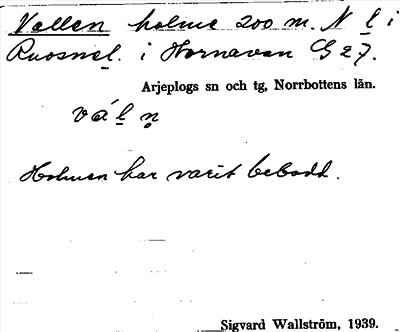 Vallen holme 200 m. N l i
Ruosnel. i Hornavan G 27.
Arjeplogs sn och tg, Norrbottens län.
vál n̥
Holmen har varit bebodd.
Sigvard Wallström, 1939.